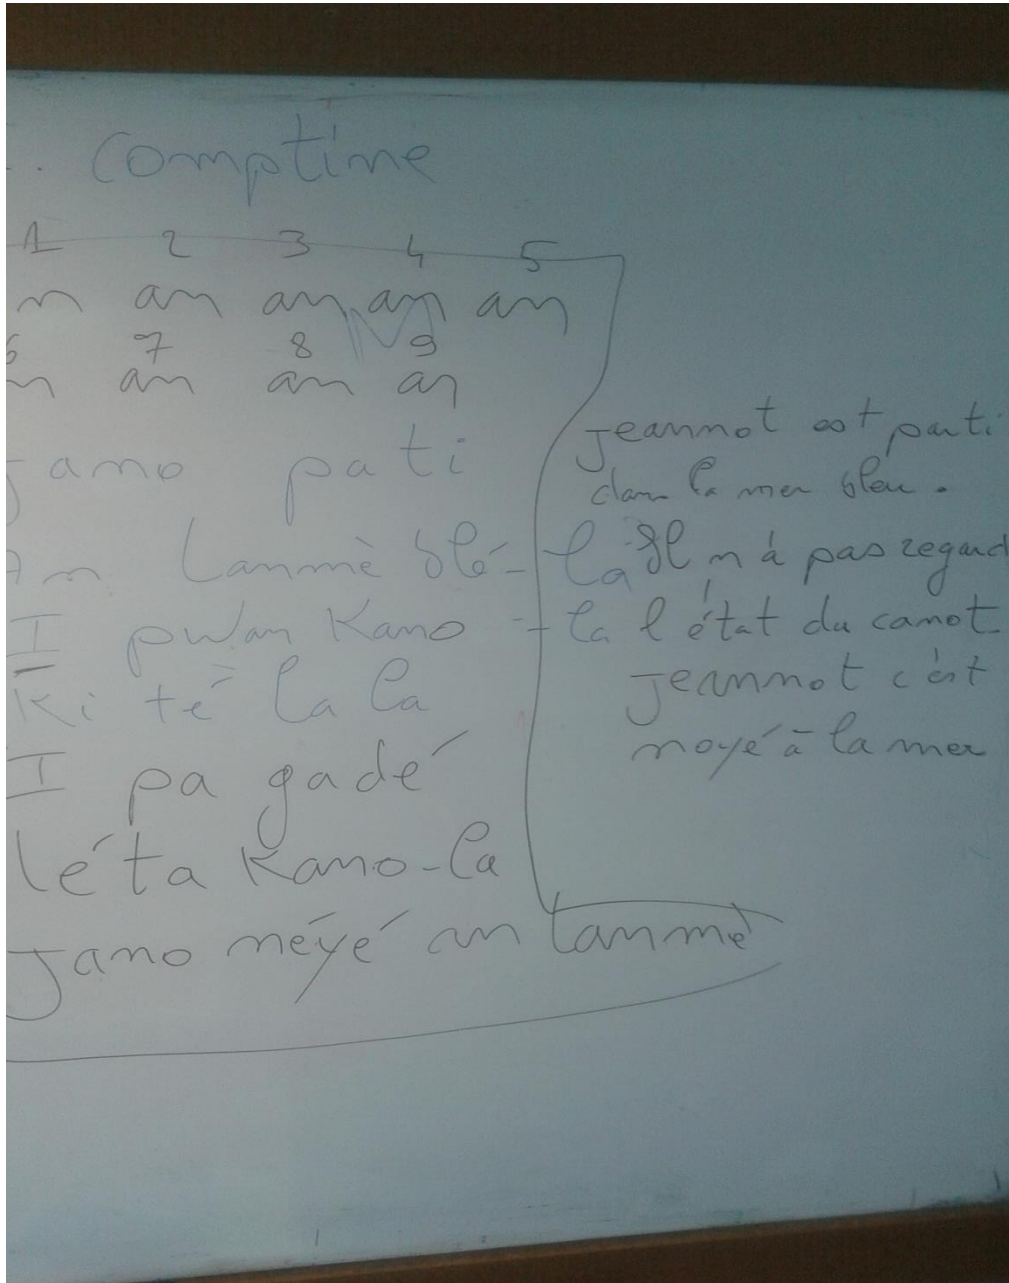 Comptine
1 2 3 4 5
an an an an
7 8 9
an an an
Jano pati
An Lanmè blé-la
I pwan Kano-la
Ki té la la
I pa gadé
Léta Kano-la
Jano néyé an lanmè
Jeannot est parti
dans la mer bleu.
Il n'à pas regard
l'état du canot
Jeannot c'est
noyé à la mer